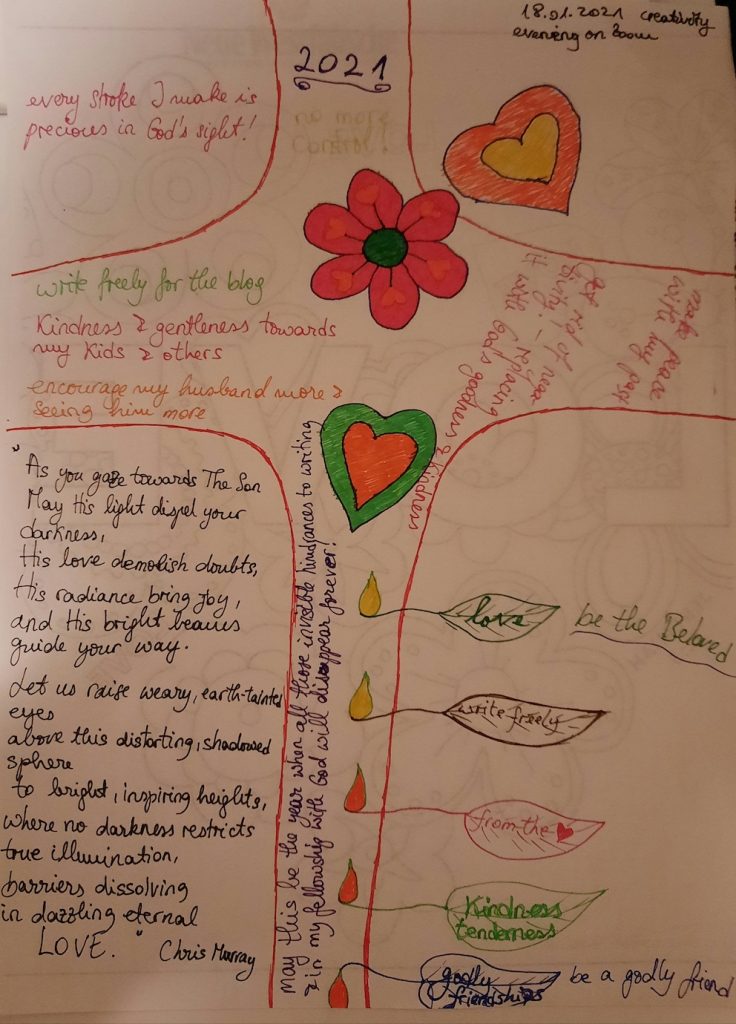 18.01.2021 creativity
evening on Zoom
2021
no more
control!
every stroke I make is
precious in God's sight!
write freely for the blog
Kindness & gentleness towards
my Kids & others
encourage my husband more &
seeing him more
make peace
with my past
Get rid of nega
tivity! - replacing
it with God's goodness & kindness
"As you gaze towards The Son
May His light dispel your
darkness,
His love demolish doubts,
His radiance bring joy,
and His bright beams
guide your way.
Let us raise weary, earth-tainted
eyes
above this distorting, shadowed
sphere
to bright, inspiring heights,
where no darkness restricts
true illumination,
barriers dissolving
in dazzling eternal
LOVE."
Chris Murray
May this be the year when all those invisible hindrances to writing
& in my fellowship with God will disappear forever!
love
be the Beloved
write freely
from the
Kindness
tenderness
godly
friendships
be a godly friend